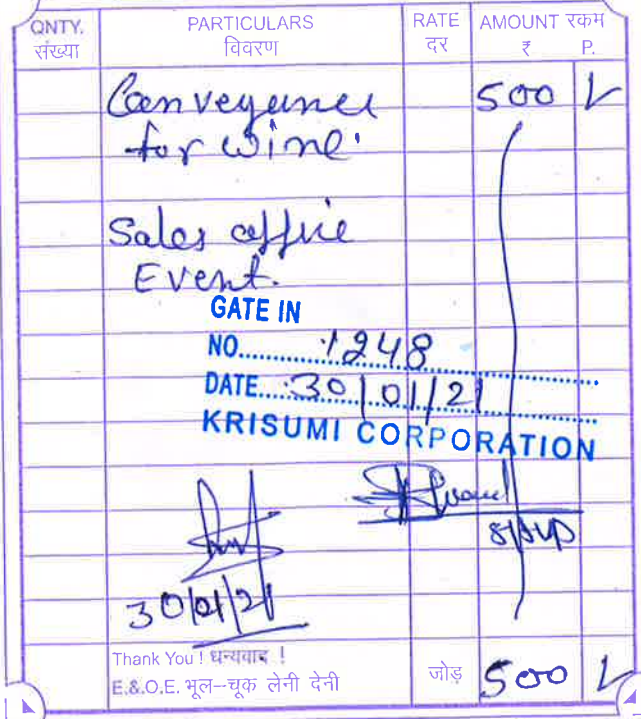 QNTY. PARTICULARS RATE AMOUNT रकम
संख्या विवरण दर ₹ P.
Conveyance 500
for wine.
Sales office
Event.
GATE IN
NO. 1248
DATE 30/01/21
KRISUMI CORPORATION
30/01/21
Thank You ! धन्यवाद !
E.&.O.E. भूल–चूक लेनी देनी जोड़ 500